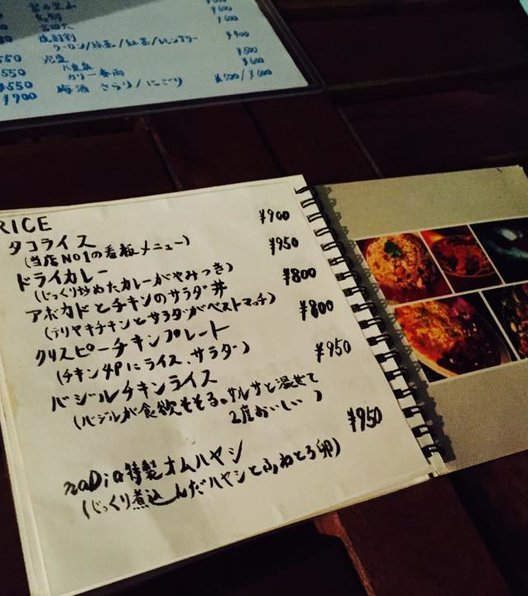 ¥600
¥600
焼酎割
ウーロン/緑茶/紅茶/ジンジャー
¥500
¥550
¥600
¥550
カリー春雨
¥550
梅酒 さらり/にごり
¥500/¥600
¥900
RICE
タコライス ¥900
(当店NO1の看板メニュー)
ドライカレー ¥950
(じっくり炒めたカレーがやみつき)
アボカドとチキンのサラダ丼 ¥800
(テリヤキチキンとサラダがベストマッチ)
クリスピーチキンプレート ¥800
(チキン4Pにライス、サラダ)
バジルチキンライス ¥950
(バジルが食欲そそる。サルサと混ぜて
2度おいしい)
naDia特製オムハヤシ ¥950
(じっくり煮込んだハヤシとふわとろ卵)